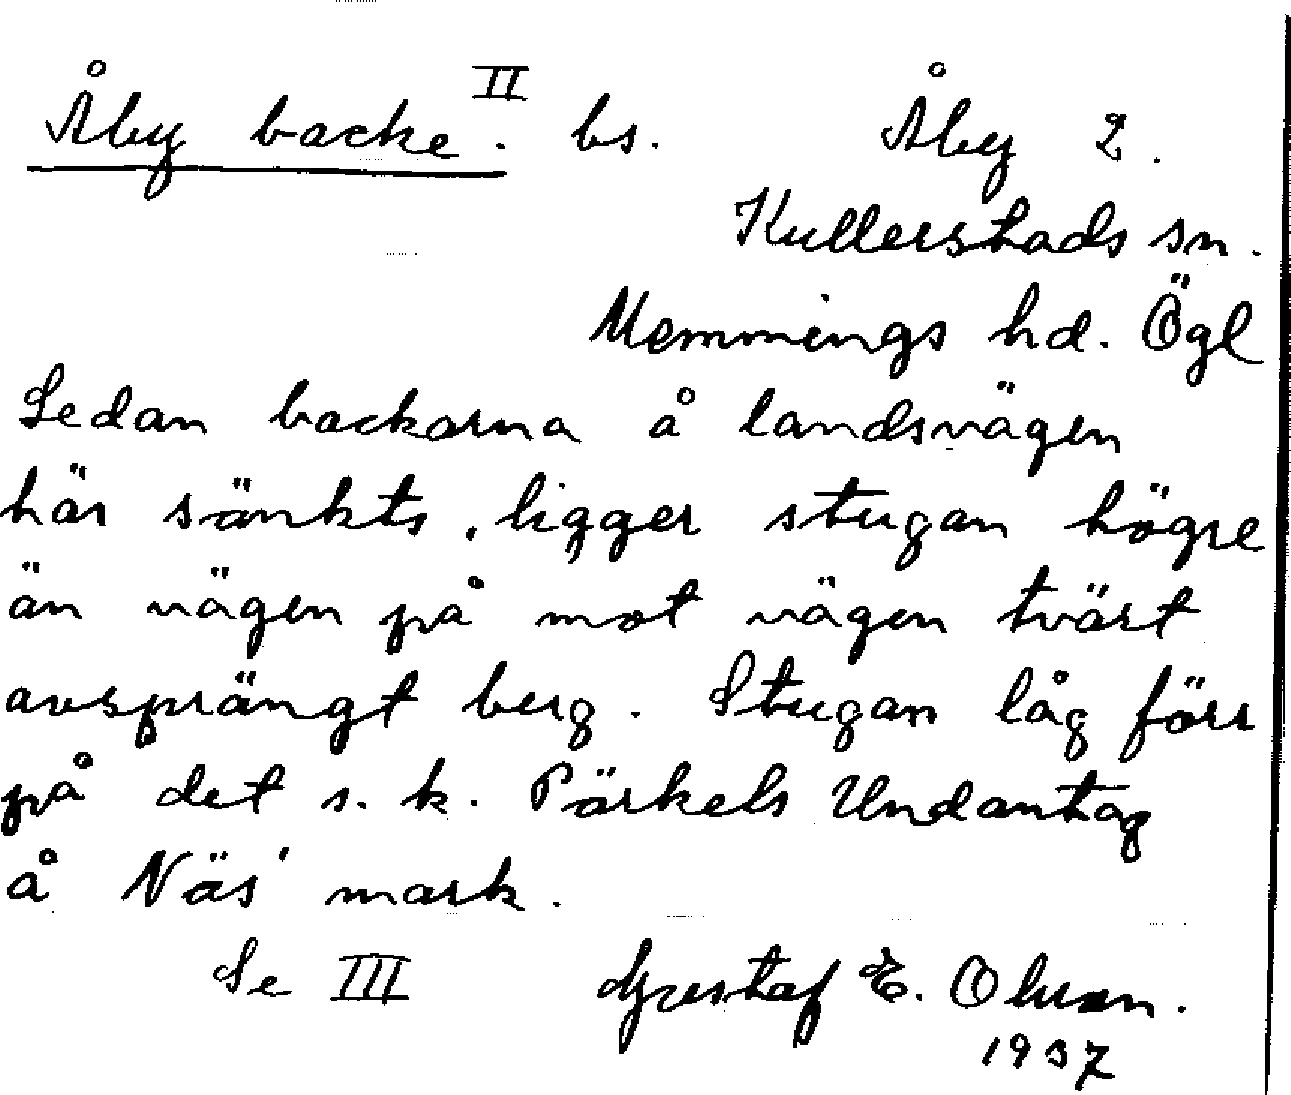 Åby backe.II bs. Åby 2.
Kullerstads sn.
Memmings hd. Ögl
Sedan backarna å landsvägen
här sänkts, ligger stugan högre
än vägen på mot vägen tvärt
avsprängt berg. Stugan låg förr
på det s. k. Pärkels Undantag
å Näs' mark.
Se III Gustaf E. Olsson.
1937